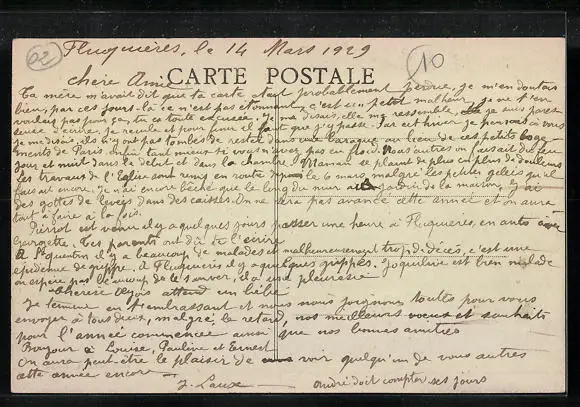 02
Fluquières, le 14 Mars 1929
10
chère Amie
CARTE POSTALE
Ta mère m'avait dit que ta carte était probablement perdue, je m'en doutais
bien, par ces jours-là ce n'est pas étonnant, c'est un petit malheur, je ne t'en
voulais pas pour ça, tu es toute excusée. Je me disais, elle me ressemble, elle je suis
seuse d'écrire, je recule et pour finir il faut que j'y passe. Par cet hiver, je pensais à vous
je me disais, s'ils n'ont pas tombés de rester dans une baraque au lieu de ces petits loge
ments de Paris, enfin tant mieux si vous n'avez pas eu froid. Nous autres on faisait du feu
jour et nuit dans le début et dans la chambre. Maman se plaint de plus en plus de douleurs
les travaux de l'Eglise sont remis en route depuis le 6 mars, malgré les petites gelées qu'il
fait au encore. Je n'ai encore bêché que le long du mur au jardin de la maison, j'ai
des gottes de levées dans des caisses. On ne sera pas avancé cette année et on aura
tout à faire à la fois.
Pierrot est venu il y a quelques jours passer une heure à Fluquières, en auto avec
Georgette. Tes parents ont dû te l'écrire
A St Quentin il y a beaucoup de malades et malheureusement trop de décès, c'est une
épidémie de grippe. A Fluquières il y a quelques grippés. Jaqueline est bien malade
on espère pas beaucoup de le sauver, il a une pleurésie
attend un bébé
Je termine en t'embrassant et nous nous joignons toutes pour vous
envoyer à tous deux, malgré le retard, nos meilleurs voeux et souhaits
pour l'année commencée ainsi que nos bonnes amitiés
Bonjour à Louise, Pauline et Ernest
On aura peut-être le plaisir de voir quelqu'un de vous autres
cette année encore
J. Laux
André doit compter ses jours